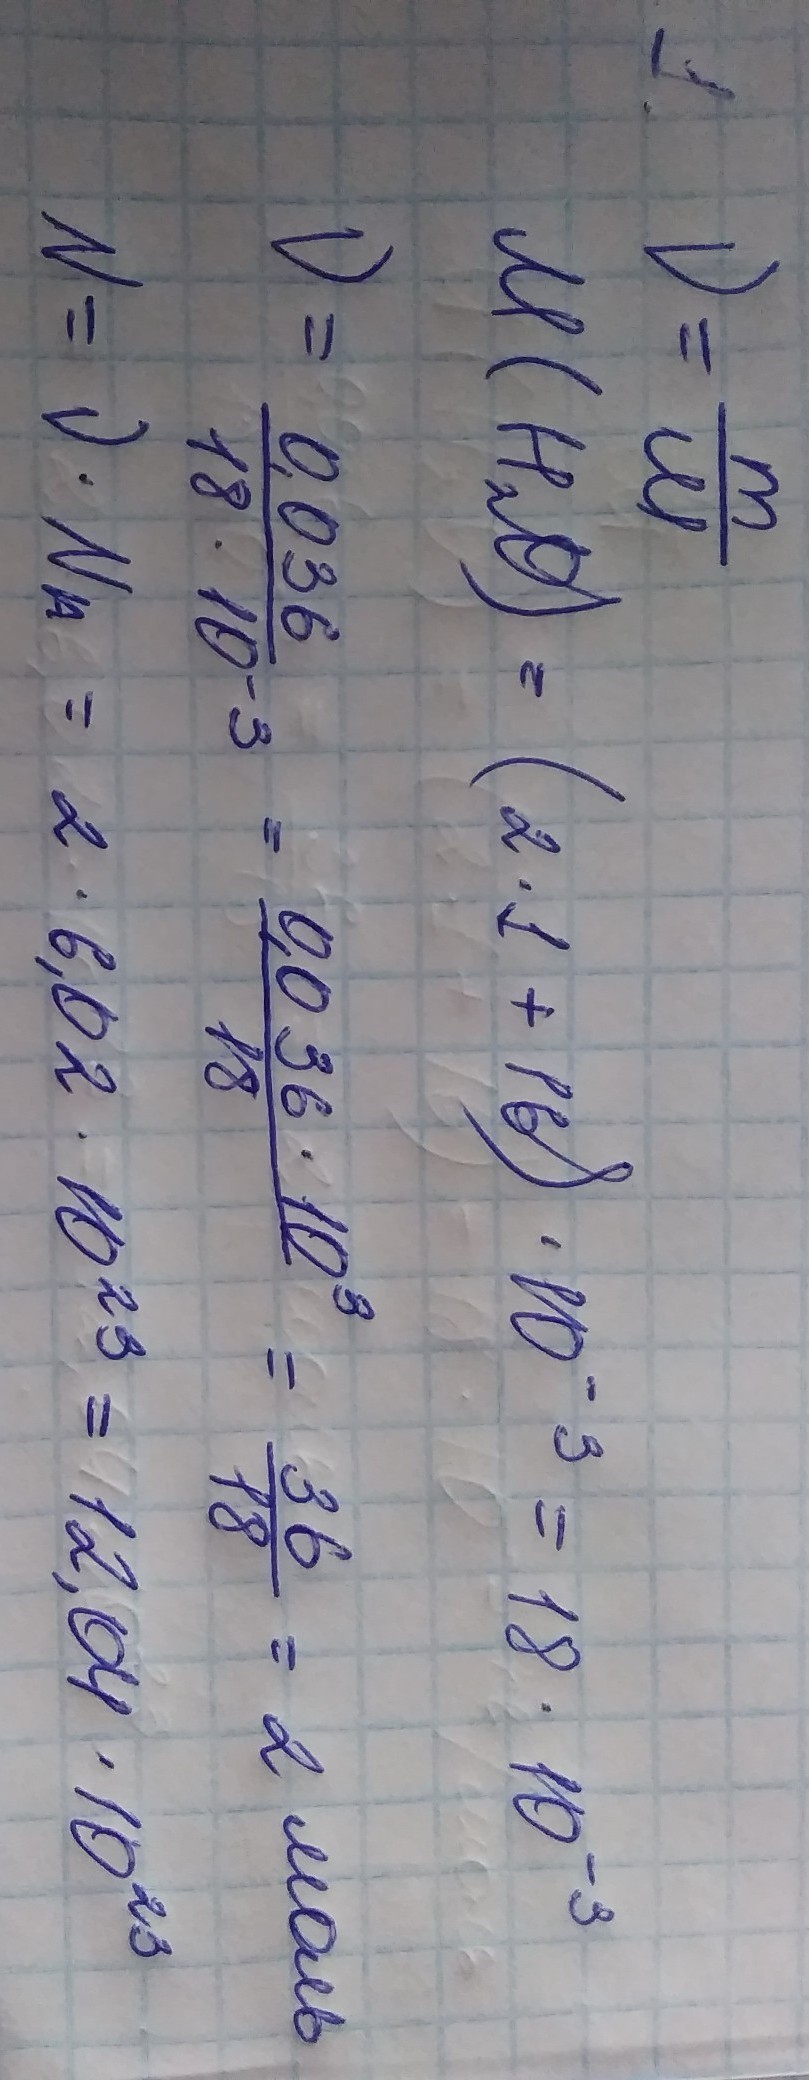 1.
ν = m/M
M(H₂O) = (2·1+16)·10⁻³ = 18·10⁻³
ν = 0,036/18·10⁻³ = 0,036·10³/18 = 36/18 = 2 моль
N = ν·Nₐ = 2·6,02·10²³ = 12,04·10²³